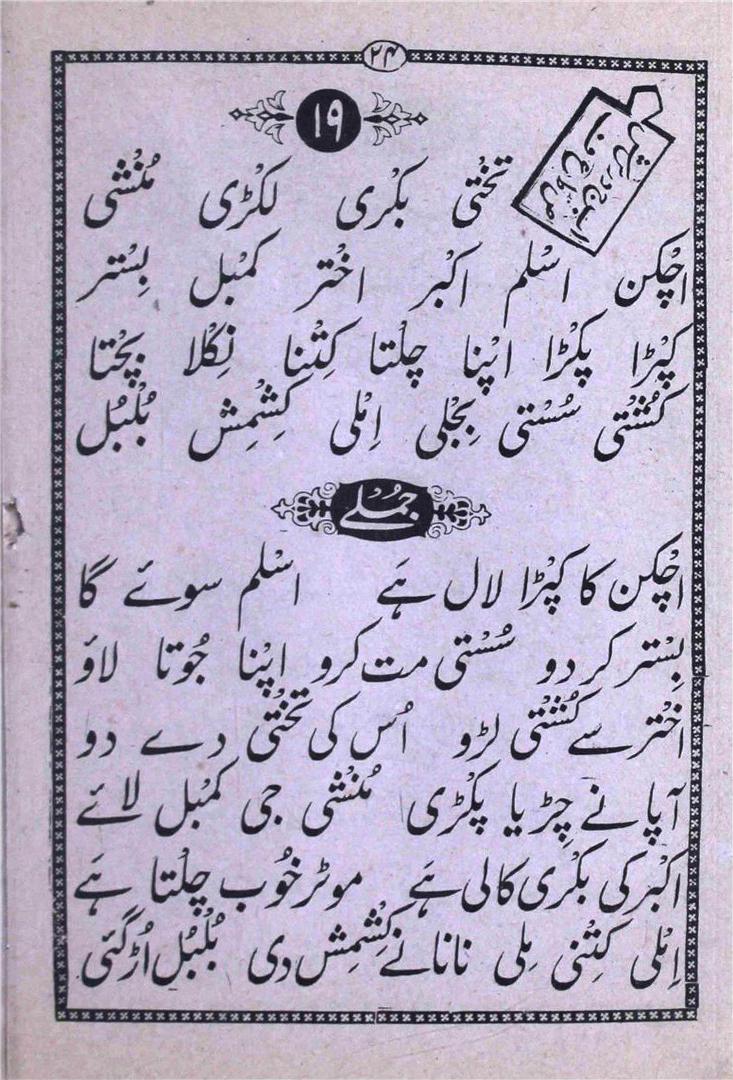 ۲۴
۱۹
تخْتی بکْری لکْڑی مُنْشی
اچْکن اسْلم اکْبر اخْتر کمْبل بِسْتر
کپْڑا پکْڑا اپْنا چلْتا کِتْنا نِکْلا بچْتا
کُشْتی سُسْتی بِجْلی اِمْلی کِشْمِش بُلْبُل
جُمْلے
اچْکن کا کپْڑا لال ہَے اسْلم سوئے گا
بِسْتر کر دو سُسْتی مت کرو اپْنا جُوتا لاؤ
اخْتر سے کُشْتی لڑو اُس کی تخْتی دے دو
آپا نے چِڑیا پکْڑی مُنْشی جی کمْبل لائے
اکْبر کی بکْری کالی ہَے موٹر خُوب چلْتا ہَے
اِمْلی کِتْنی مِلی نانا نے کِشْمِش دی بُلْبُل اُڑ گئی